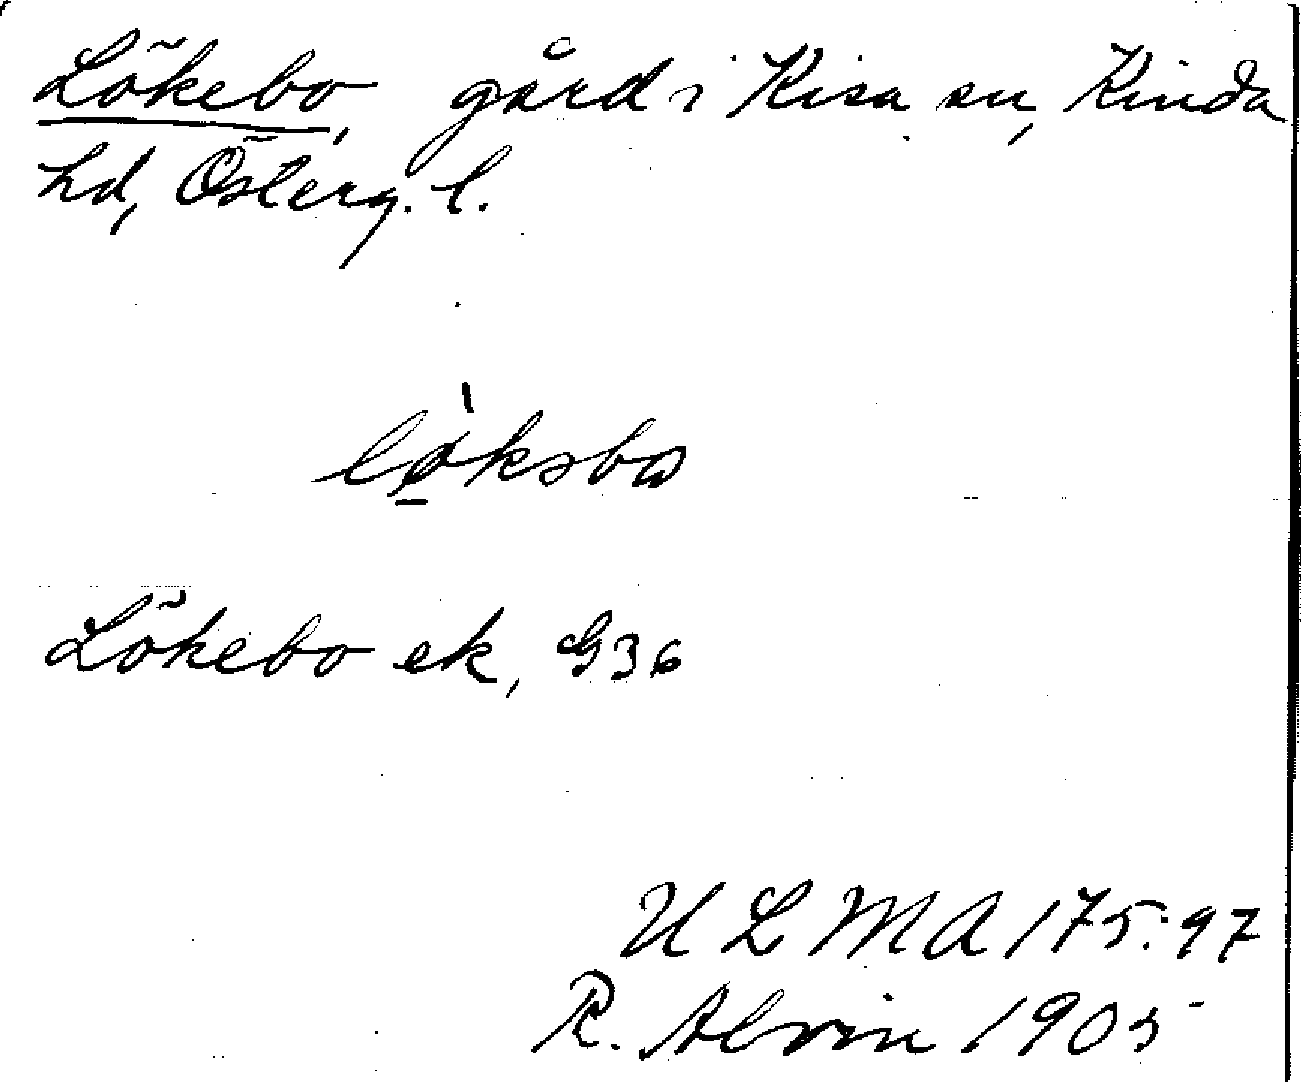 Lökebo, gård i Kisa sn, Kinda
hd, Österg. l.
lø̀kəbω
Lökebo ek, G36
ULMA 175:97
R. Alvin 1905